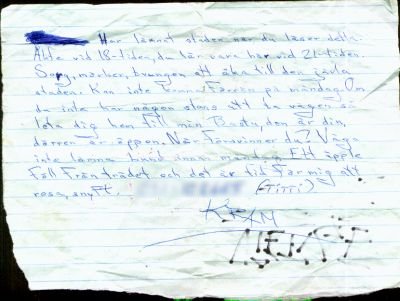 Har lämnat staden när du läser detta.
Åkte vid 18-tiden, du lär vara här vid 21-tiden.
Sorg, mörker, tvungen att åka till den jävla
staden. Kan inte lämna förrän på måndag. Om
du inte har någon stans att ta vägen, så
leta dig hem till min Bastu, den är din,
dörren är öppen. När försvinner du? Våga
inte lämna innan måndag. Ett äpple
föll från trädet och det är tid för mig att
resa, snyft.
KRAM